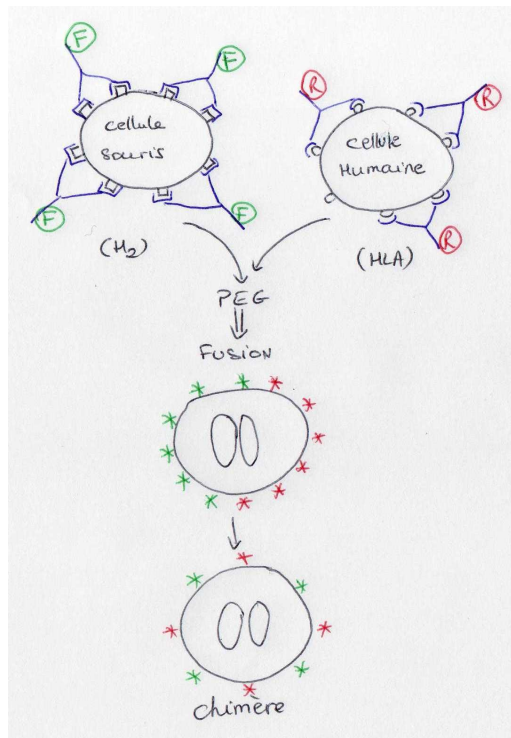 F
F
R
R
cellule
souris
cellule
Humaine
F
F
R
(H2)
(HLA)
PEG
FUSION
chimère